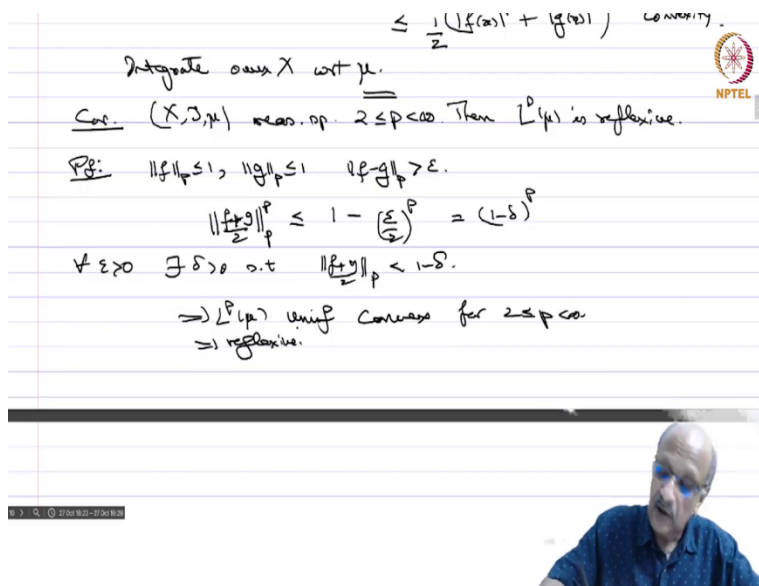 ≤ 1/2 (|f(x)|^p + |g(x)|^p) convexity.
Integrate over X wrt μ.
NPTEL
Cor. (X, S, μ) meas. sp. 2≤p<∞. Then L^p(μ) is reflexive.
Pf: ‖f‖_p ≤1, ‖g‖_p ≤1 ‖f-g‖_p > ε.
‖(f+g)/2‖_p^p ≤ 1 - (ε/2)^p = (1-δ)^p
∀ ε>0 ∃ δ>0 s.t ‖(f+g)/2‖_p < 1-δ.
⇒ L^p(μ) unif convex for 2≤p<∞
⇒ reflexive.
27 Oct 18:23 – 27 Oct 18:29